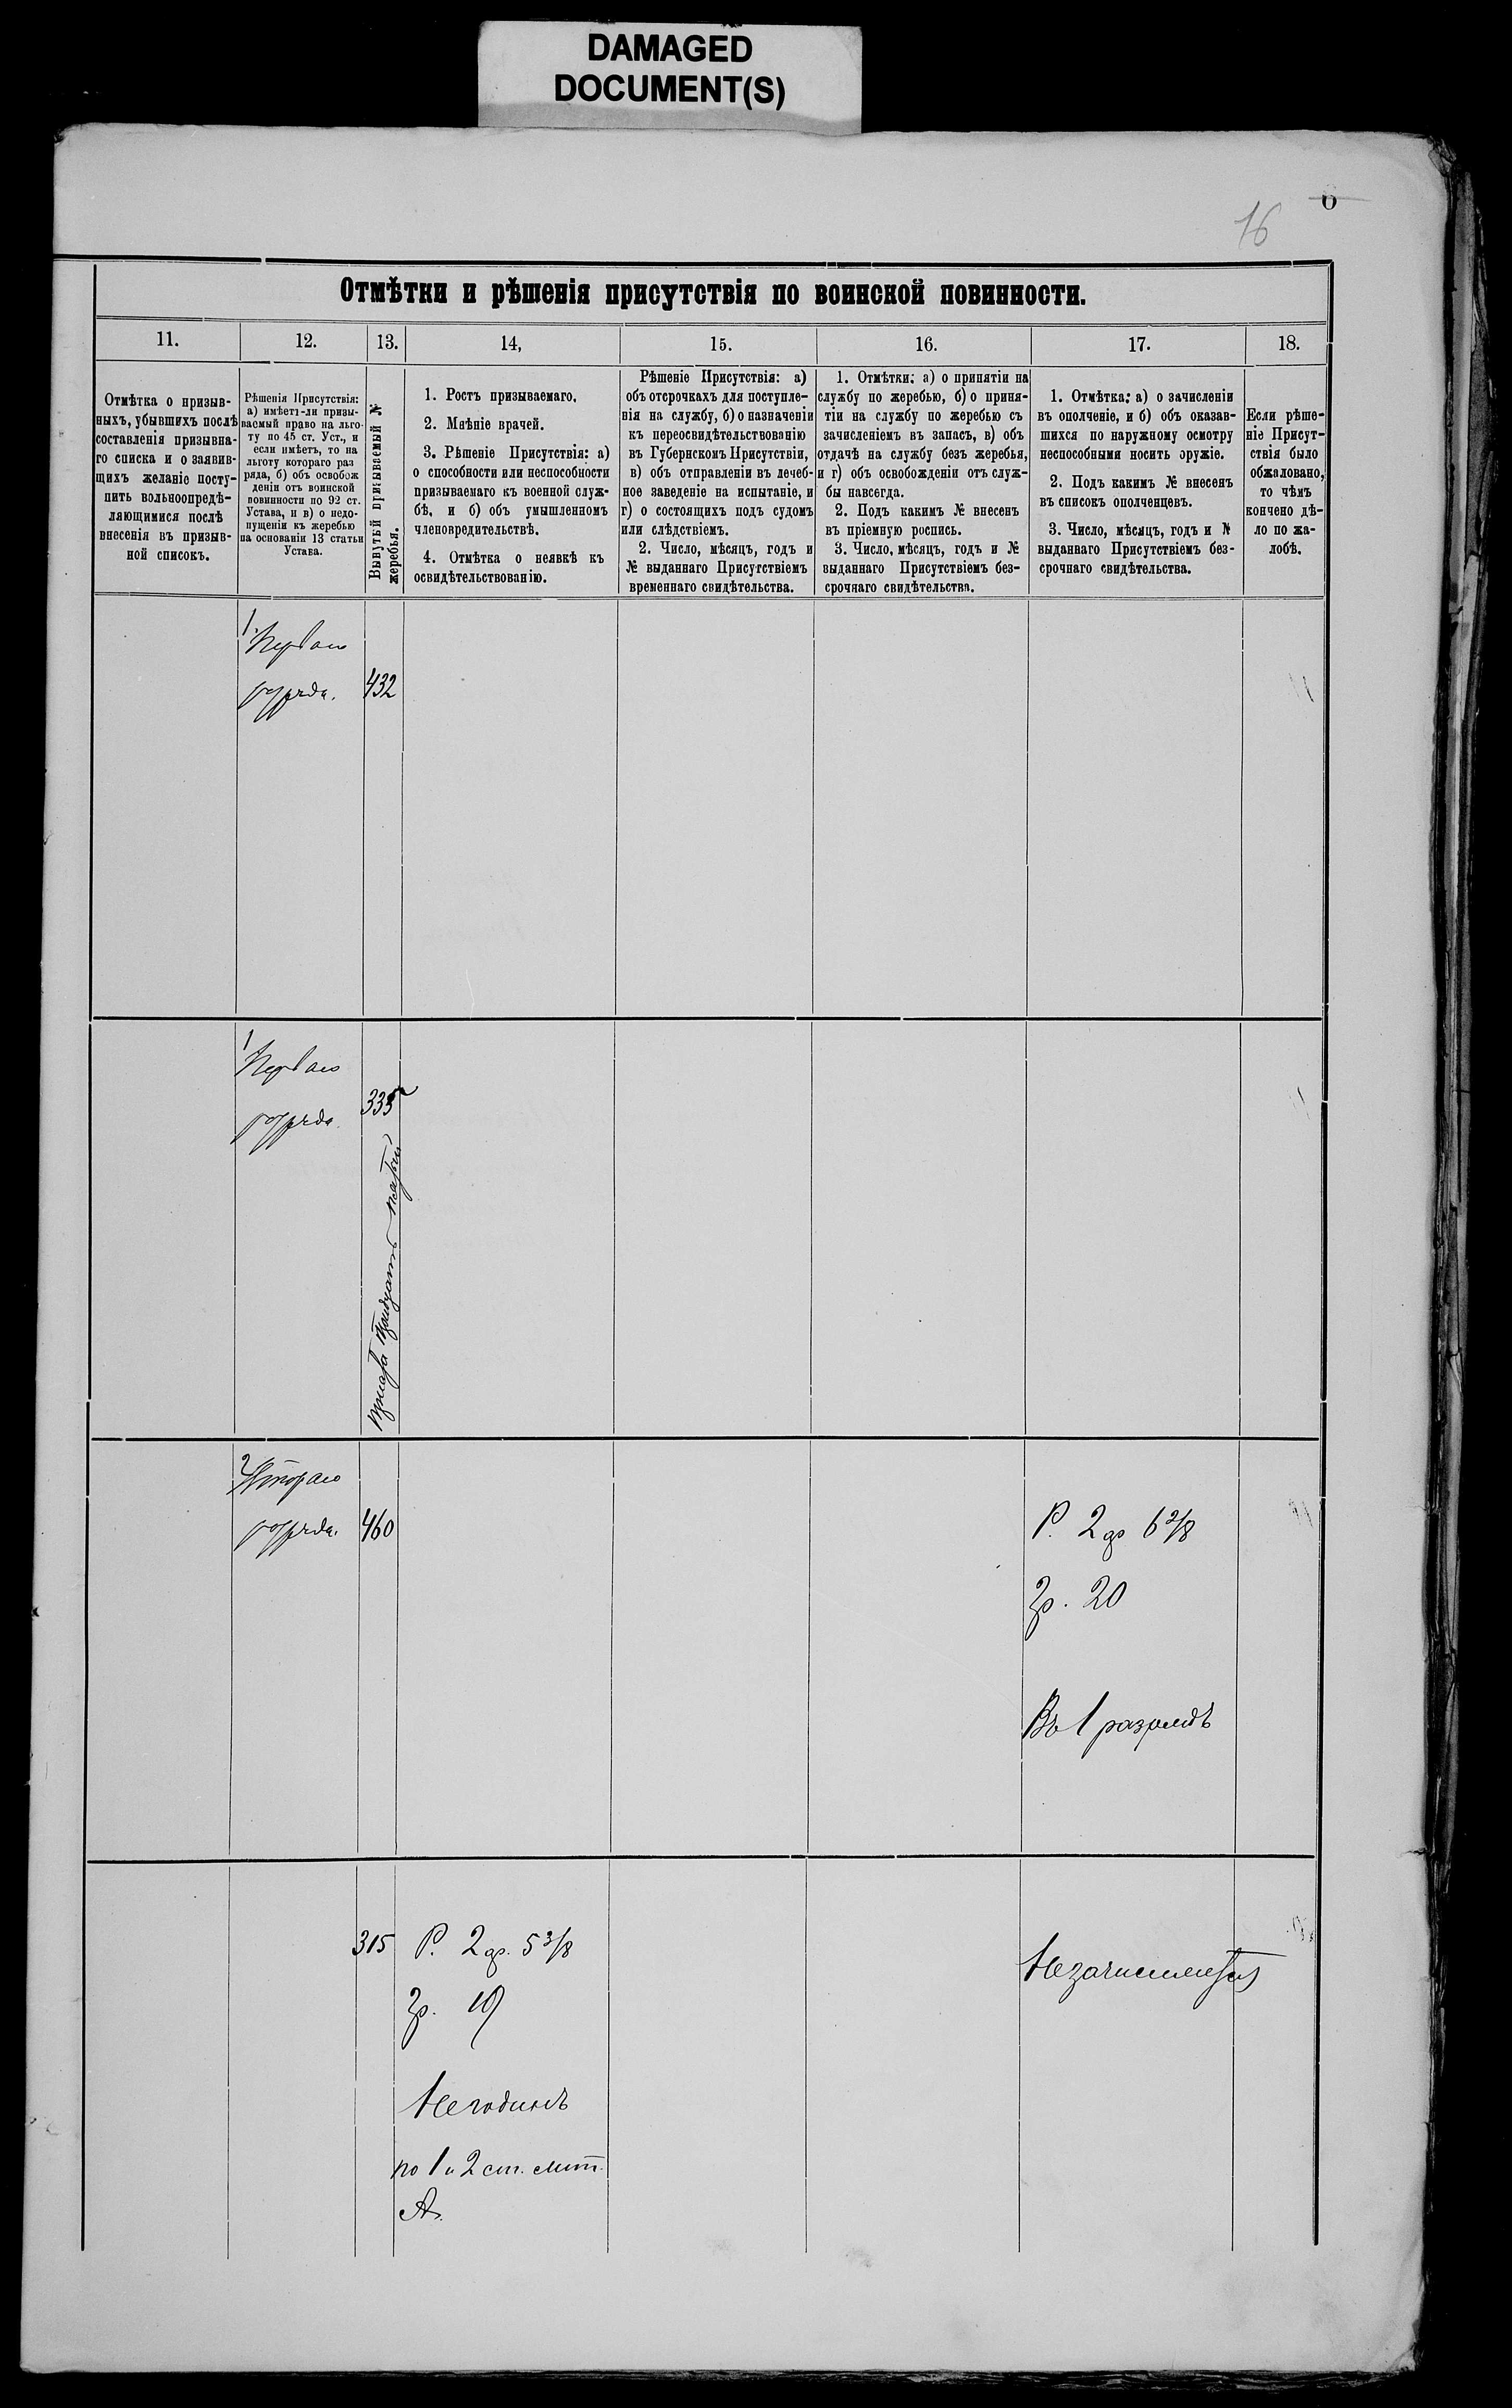 DAMAGED
DOCUMENT(S)
16
6
Отмѣтки и рѣшенія присутствія по воинской повинности.
11.
12.
13.
14,
15.
16.
17.
18.
Отмѣтка о призыв-
ныхъ, убывшихъ послѣ
составленія призывна-
го списка и о заявив-
щихъ желаніе посту-
пить вольноопредѣ-
ляющимися послѣ
внесенія въ призыв-
ной списокъ.
Рѣшенія Присутствія:
а) имѣетъ-ли призы-
ваемый право на льго-
ту по 45 ст. Уст., и
если имѣетъ, то на
льготу котораго раз
ряда, б) объ освобож
деніи отъ воинской
повинности по 92 ст.
Устава, и в) о недо-
пущеніи къ жеребью
на основаніи 13 статьи
Устава.
Вынутый призываемый №
жеребья.
1. Ростъ призываемаго.
2. Мнѣніе врачей.
3. Рѣшеніе Присутствія: а)
о способности или неспособности
призываемаго къ военной служ-
бѣ, и б) объ умышленномъ
членовредительствѣ.
4. Отмѣтка о неявкѣ къ
освидѣтельствованію.
Рѣшеніе Присутствія: а)
объ отсрочкахъ для поступле-
нія на службу, б) о назначеніи
къ переосвидѣтельствованію
въ Губернскомъ Присутствіи,
в) объ отправленіи въ лечеб-
ное заведеніе на испытаніе, и
г) о состоящихъ подъ судомъ
или слѣдствіемъ.
2. Число, мѣсяцъ, годъ и
№ выданнаго Присутствіемъ
временнаго свидѣтельства.
1. Отмѣтки: а) о принятіи на
службу по жеребью, б) о приня-
тіи на службу по жеребью съ
зачисленіемъ въ запасъ, в) объ
отдачѣ на службу безъ жеребья,
и г) объ освобожденіи отъ служ-
бы навсегда.
2. Подъ какимъ № внесенъ
въ пріемную роспись.
3. Число, мѣсяцъ, годъ и №
выданнаго Присутствіемъ без-
срочнаго свидѣтельства.
1. Отмѣтка: а) о зачисленіи
въ ополченіе, и б) объ оказав-
шихся по наружному осмотру
неспособными носить оружіе.
2. Подъ какимъ № внесенъ
въ списокъ ополченцевъ.
3. Число, мѣсяцъ, годъ и №
выданнаго Присутствіемъ без-
срочнаго свидѣтельства.
Если рѣше-
ніе Присут-
ствія было
обжаловано,
то чѣмъ
кончено дѣ-
ло по жа-
лобѣ.
1.
Перваго
разряда.
432
1
Перваго
разряда.
335
триста тридцать пятый
2
Втораго
разряда.
460
Р. 2 ар 6 2/8
Гр. 20
Въ 1 разрядъ
315
Р. 2 ар. 5 3/8
Гр. 19
Негоденъ
по 1 и 2 ст. лит.
А.
Незачисленъ